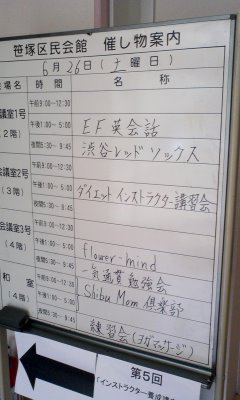 笹塚区民会館 催し物案内
6月26日(土曜日)
会場名 時間 名称
会議室1号
(2階)
午前9:00~12:30
午後1:00~5:00 EF英会話
夜間5:30~9:45 渋谷レッドソックス
会議室2号
(3階)
午前9:00~12:30
午後1:00~5:00 ダイエットインストラクター講習会
夜間5:30~9:45
会議室3号
(4階)
午前9:00~12:30
午後1:00~5:00 flower-mind
夜間5:30~9:45 一気通貫勉強会
和室
(4階)
午前9:00~12:30 Shibu Mom倶楽部
午後1:00~5:00
夜間5:30~9:45 練習会(ヨガマッサージ)
第5回
「インストラクター養成講